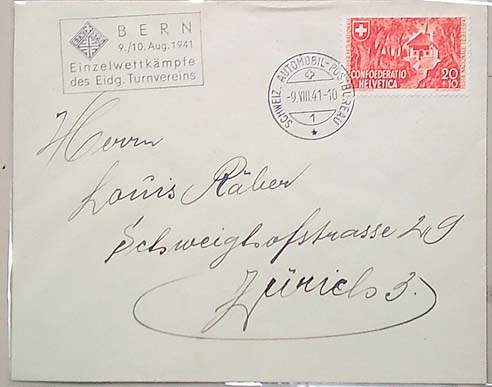 BERN
9./10. Aug. 1941
Einzelwettkämpfe
des Eidg. Turnvereins
SCHWEIZ. AUTOMOBIL-POSTBUREAU
-9.VIII.41-10
1
CONFOEDERATIO
HELVETICA
20
+10
Herrn
Louis Räber
Schweighofstrasse 29
Zürich 3.